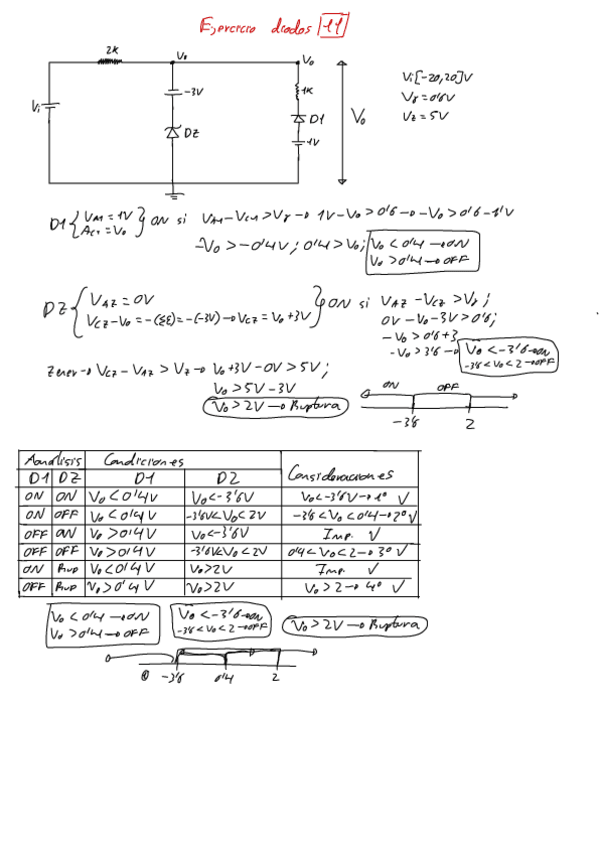 Ejercicio diodos 11
2K
Vo
Vo
Vi[-20,20]V
-3V
1K
Vγ = 0'6V
Vi
D1
Vo
Vz = 5V
DZ
1V
D1 { VA1 = 1V } ON si VA1 - VC1 > Vγ → 1V - Vo > 0'6 → -Vo > 0'6 - 1V
AC1 = Vo
-Vo > -0'4V; 0'4 > Vo; Vo < 0'4 → ON
Vo > 0'4 → OFF
DZ { VAZ = 0V } ON si VAZ - VCZ > Vγ;
VCZ - Vo = -(ΣE) = -(-3V) → VCZ = Vo + 3V
0V - Vo - 3V > 0'6;
-Vo > 0'6 + 3
-Vo > 3'6 → Vo < -3'6 → ON
-3'6 < Vo < 2 → OFF
Zener → VCZ - VAZ > Vz → Vo + 3V - 0V > 5V;
Vo > 5V - 3V
Vo > 2V → Ruptura
ON OFF
-3'6 2
Análisis Condiciones
D1 DZ D1 D2 Consideraciones
ON ON Vo < 0'4V Vo < -3'6V Vo < -3'6V → 1º √
ON OFF Vo < 0'4V -3'6V < Vo < 2V -3'6 < Vo < 0'4 → 2º √
OFF ON Vo > 0'4V Vo < -3'6V Imp. √
OFF OFF Vo > 0'4V -3'6V < Vo < 2V 0'4 < Vo < 2 → 3º √
ON Rup Vo < 0'4V Vo > 2V Imp. √
OFF Rup Vo > 0'4V Vo > 2V Vo > 2 → 4º √
Vo < 0'4 → ON Vo < -3'6 → ON Vo > 2V → Ruptura
Vo > 0'4 → OFF -3'6 < Vo < 2 → OFF
0 -3'6 0'4 2